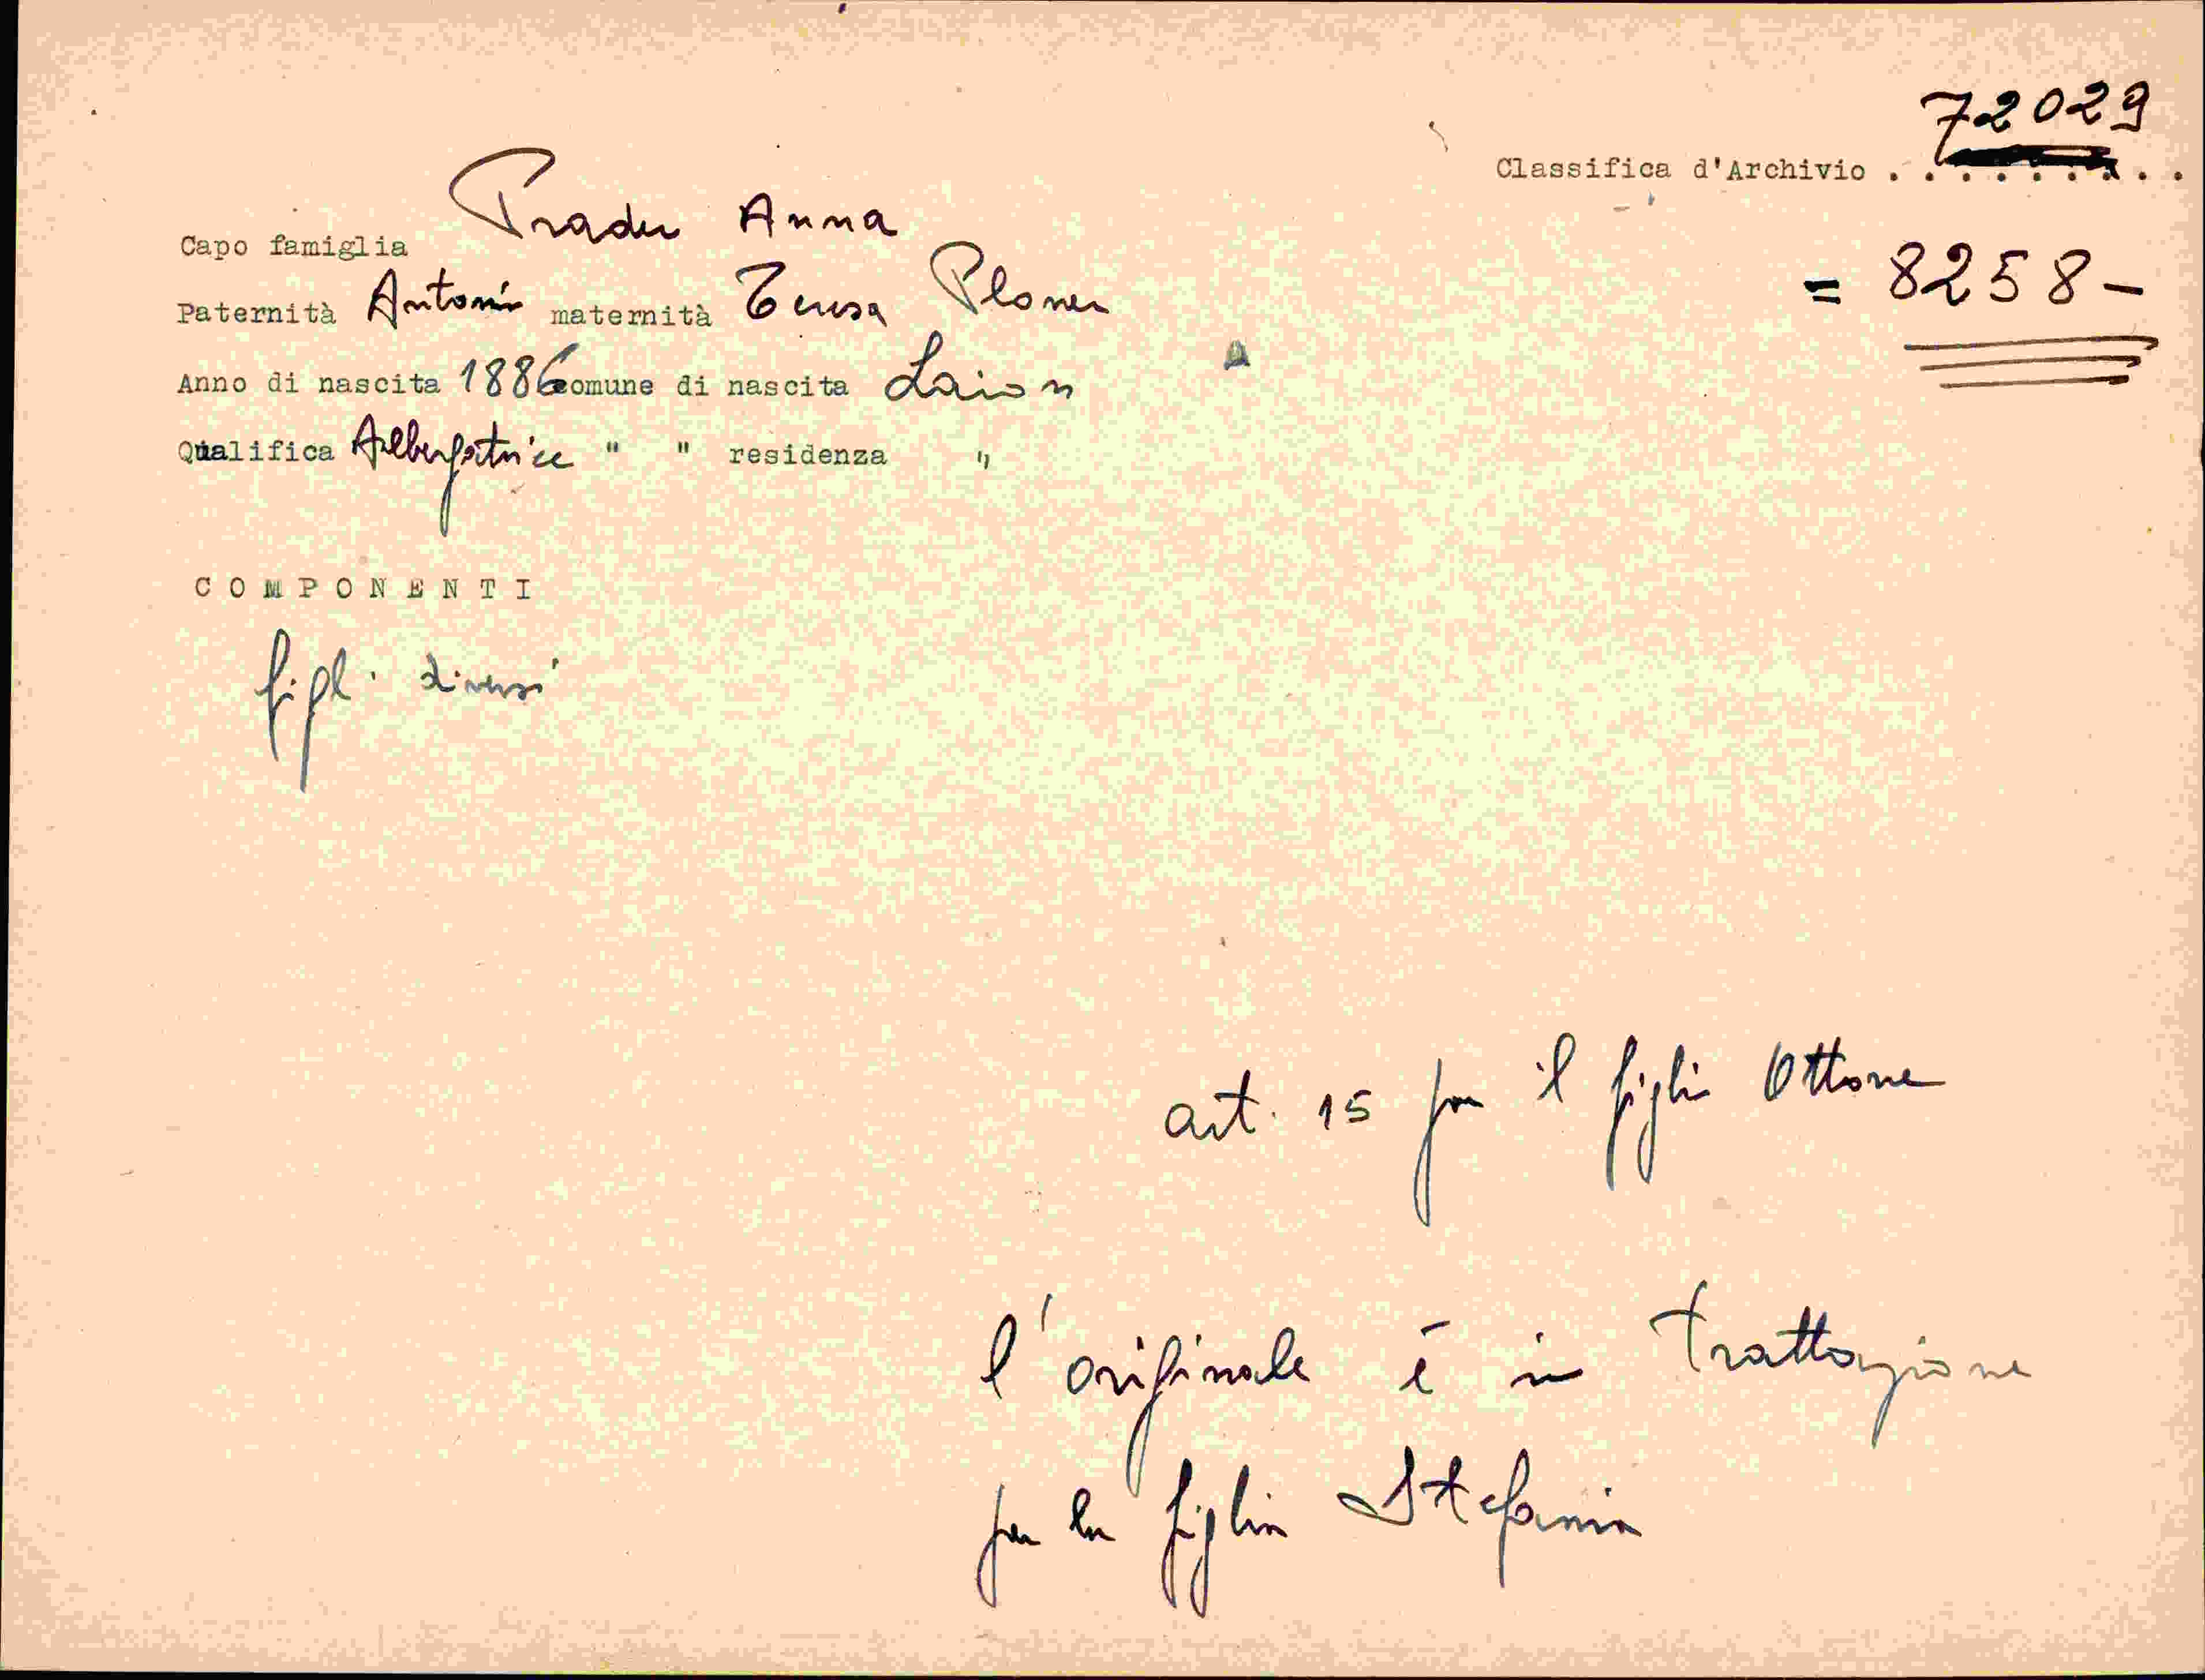 72029
Classifica d'Archivio . . . . . . . . .
Capo famiglia Prader Anna
= 8258-
Paternità Antonio maternità Teresa Ploner
Anno di nascita 1886 comune di nascita Laion
Qualifica Albergatrice " " residenza "
COMPONENTI
figli diversi
art. 15 per il figlio Ottone
l'originale è in trattazione
per la figlia Stefania